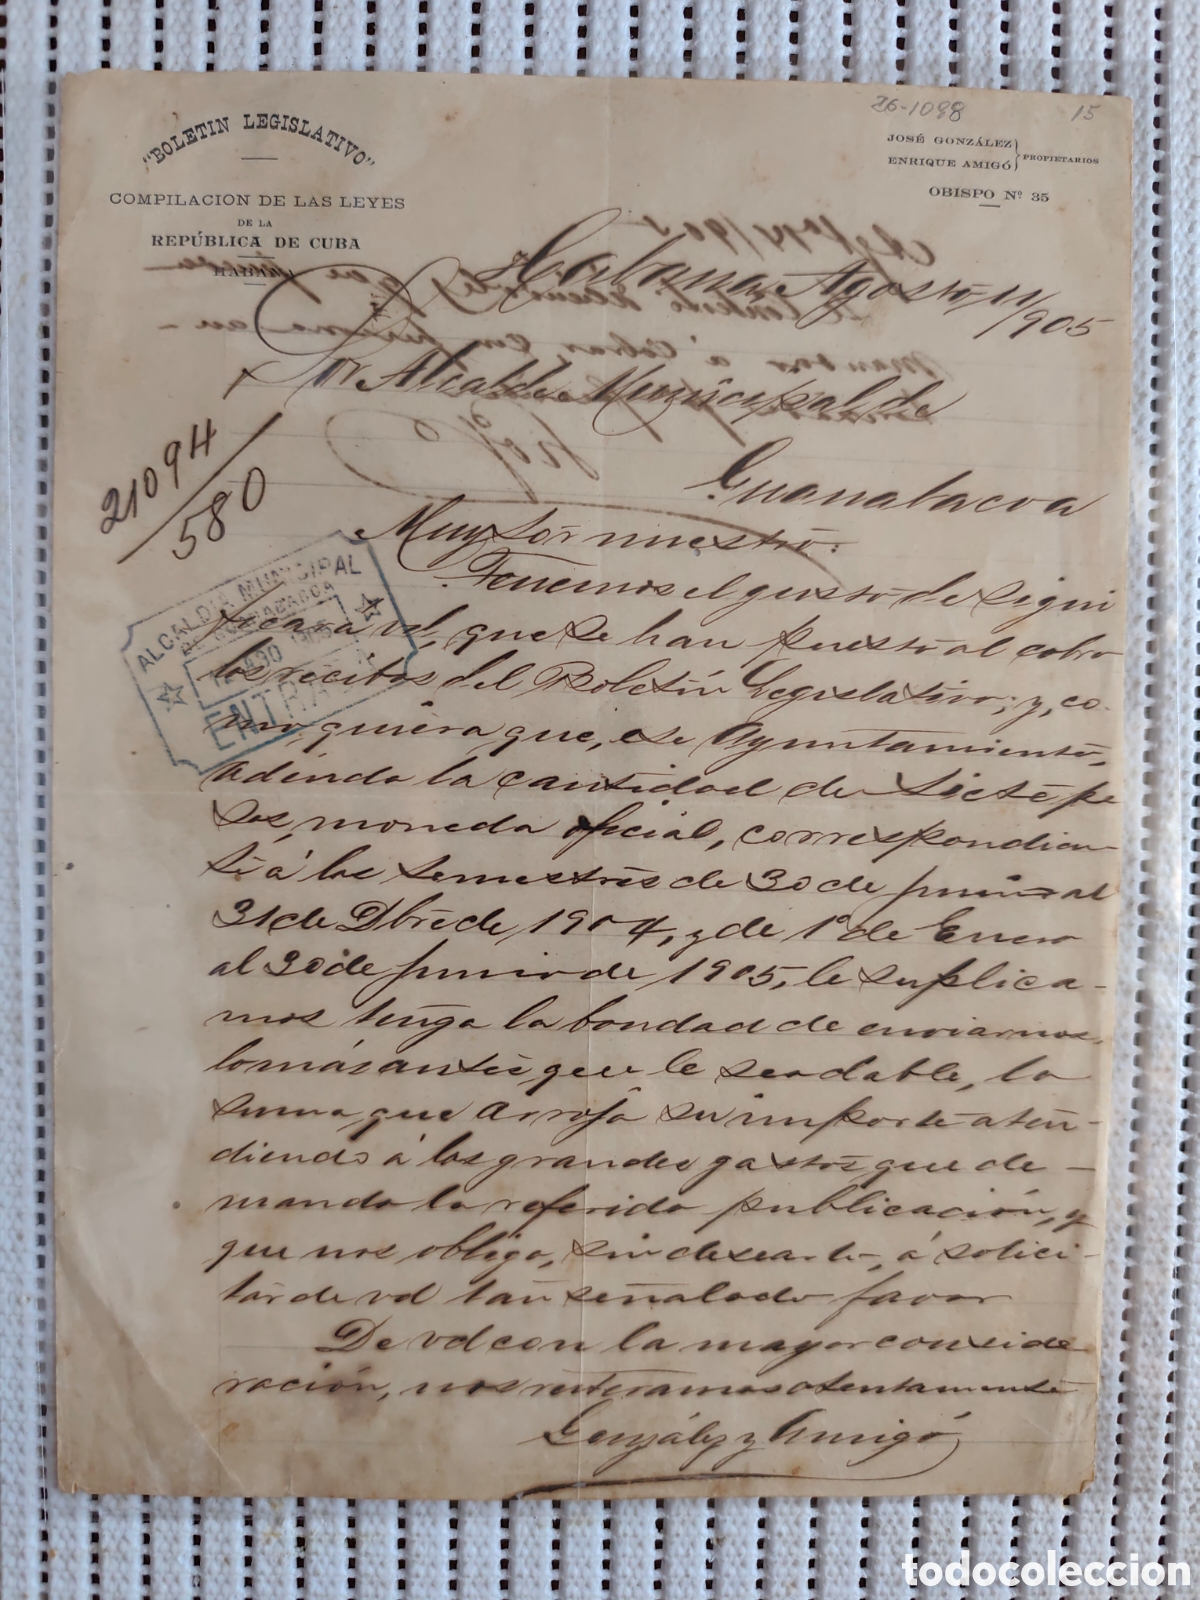 26-1098
15
"BOLETIN LEGISLATIVO"
COMPILACION DE LAS LEYES
DE LA
REPÚBLICA DE CUBA
HABANA
JOSÉ GONZÁLEZ
ENRIQUE AMIGÓ
PROPIETARIOS
OBISPO Nº 35
Habana, Agosto, 11/905
Sor Alcalde Municipal de
Guanabacoa
21094/580
ALCALDIA MUNICIPAL
DE GUANABACOA
AGO 1905
ENTRADA
Muy Sor nuestro:
Tenemos el gusto de signi
ficar a vd, que se han puesto al cobro
los recibos del Boletín Legislativo; y, co-
mo, quiera que, ese Ayuntamiento,
adeuda la cantidad de siete pe
sos, moneda oficial, correspondien-
te á los semestres de 30 de junio al
31 de Dbre de 1904, y de 1º de Enero
al 30 de junio de 1905, le suplica-
mos tenga la bondad de enviarnos,
lo más antes que le sea dable, la
suma que arroja su importe aten-
diendo á los grandes gastos que de-
manda la referida publicación, y
que nos obliga, sin desearlo, á solici-
tar de vd tan señalado favor
De vd con la mayor conside
ración, nos reiteramos atentamente
González y Amigó
todocoleccion